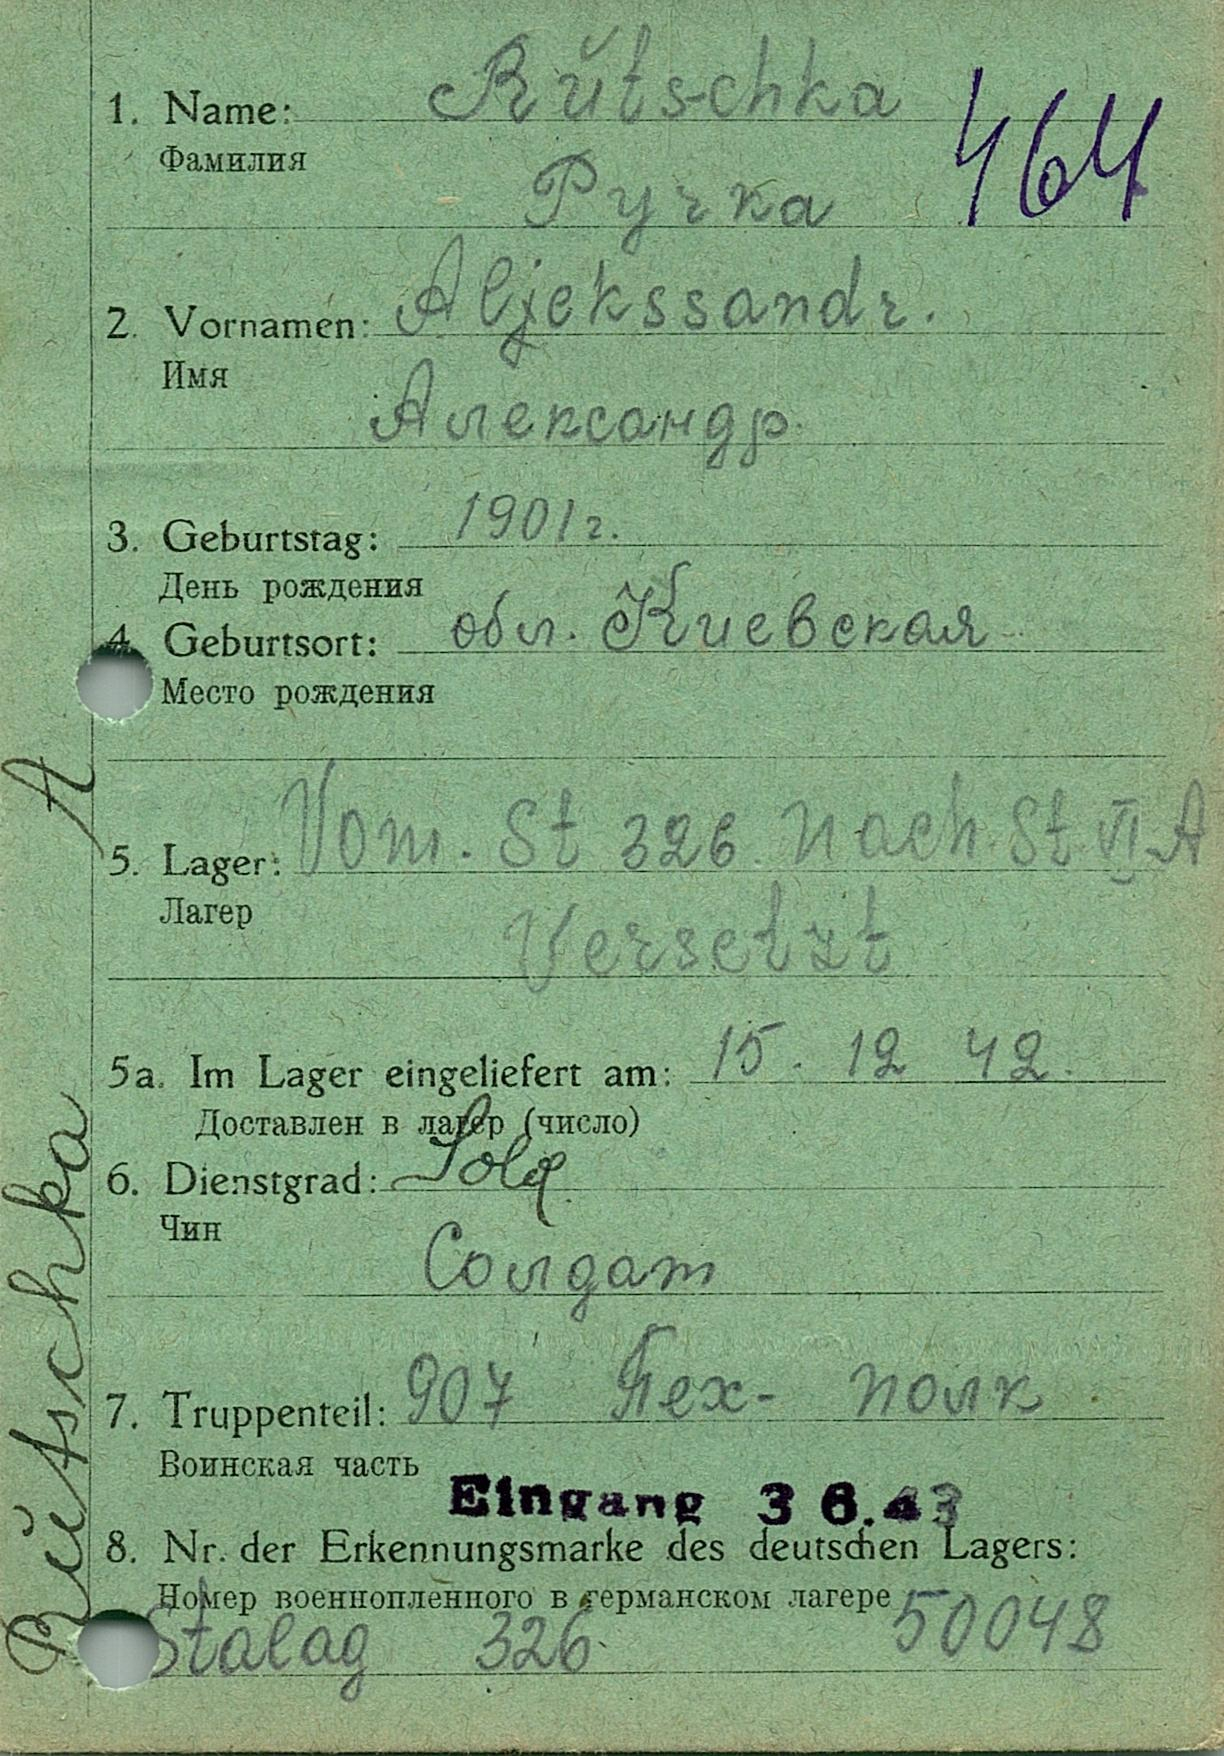 1. Name: Rŭtschka
464
Фамилия
Ручка
2. Vornamen: Aljekssandr.
Имя
Александр.
3. Geburtstag: 1901 г.
День рождения
4 Geburtsort: обл. Киевская
Место рождения
5. Lager: Vom. St 326 nach St VI A
Лагер
Versetzt
5a. Im Lager eingeliefert am: 15. 12 42.
Доставлен в лагер (число)
6. Dienstgrad: Sold.
Чин
Солдат
7. Truppenteil: 907 Пех- полк
Воинская часть
Eingang 3 6.43
8. Nr. der Erkennungsmarke des deutschen Lagers:
Номер военнопленного в германском лагере 50048
Stalag 326
Rŭtschka A